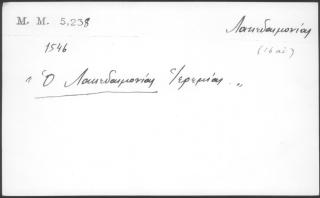 M. M. 5,238
Λακεδαιμονίας
(16 αἰ)
1546
" Ὁ Λακεδαιμονίας Ἱερεμίας . "